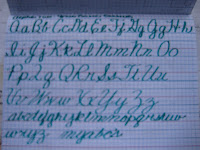 Aa Bb Cc Dd Ee Ff Gg Hh
Ii Jj Kk Ll Mm Nn Oo
Pp Qq Rr Ss Tt Uu
Vv Ww Xx Yy Zz
abcdefghijklmnopqrstuv
wxyz